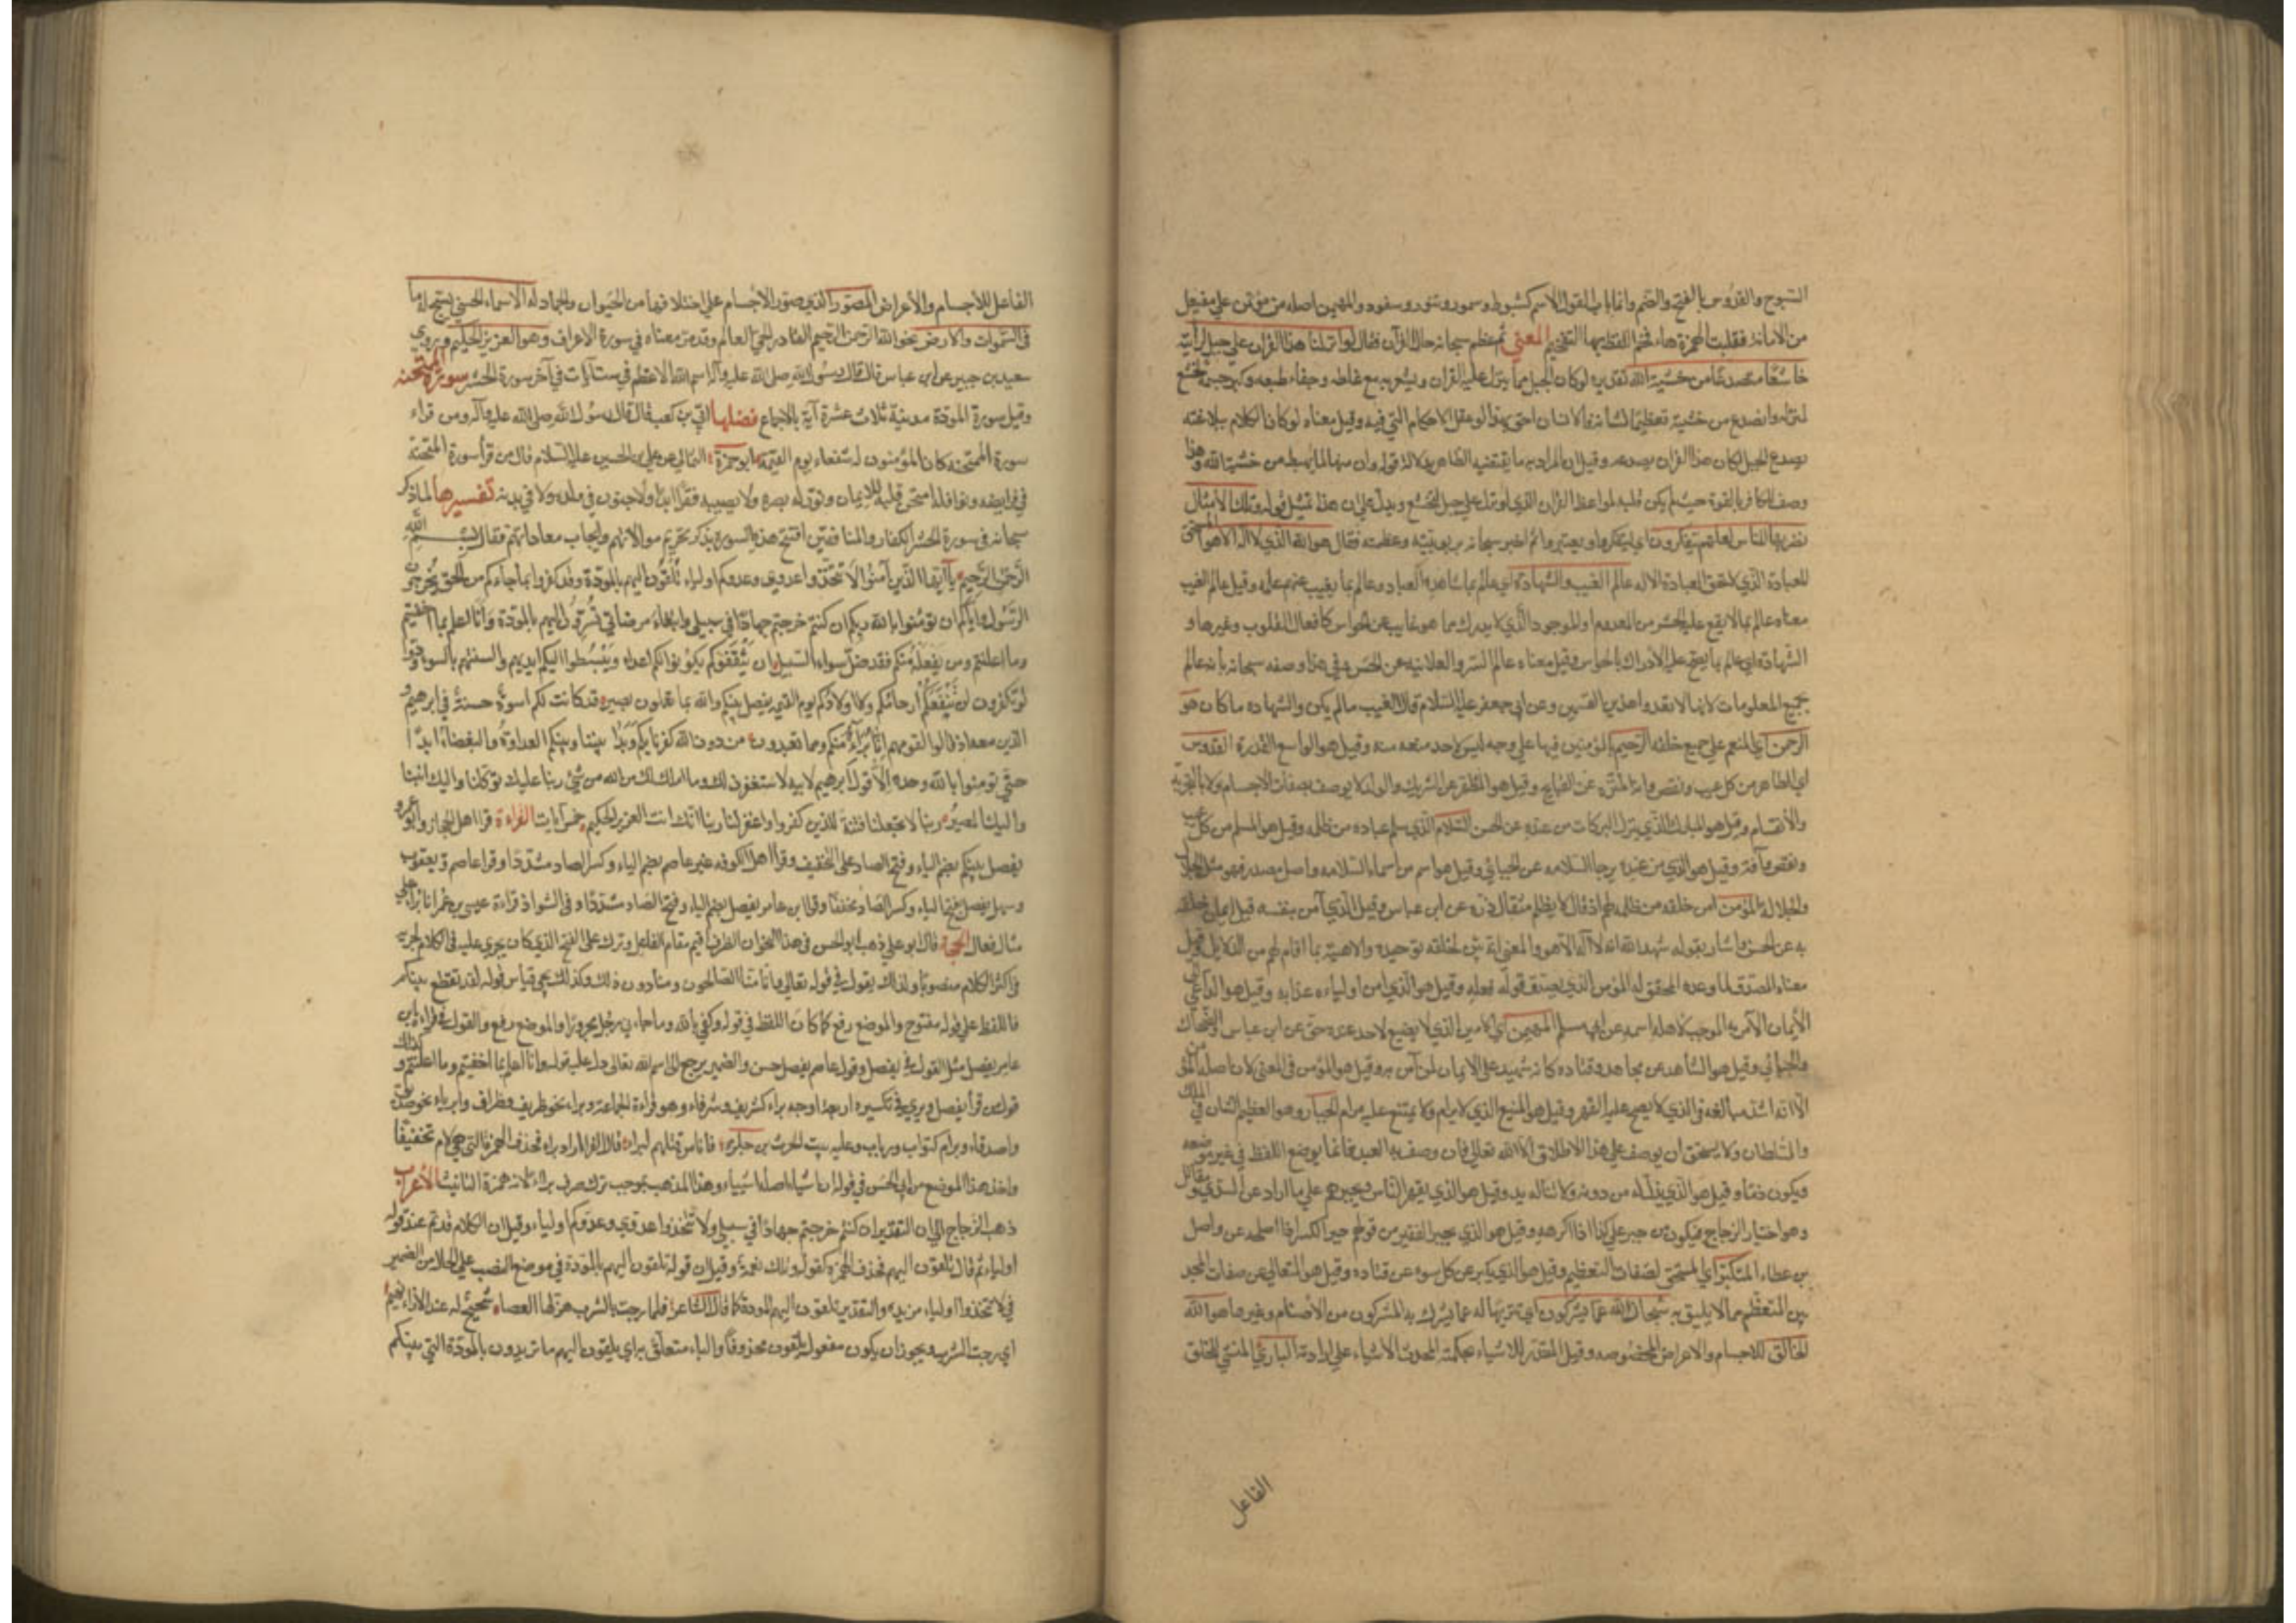 السبوح والقدوس بالفتح والضم وانما باب الفعول الاسم كشبوط وسمور وتنور وسفود والمهيمن اصله من مؤيمن على مفيعل
من الامانة فقلبت الهمزة هاء فخم اللفظ بها التفخيم المعنى ثم عظم سبحانه حال القرآن فقال لو انزلنا هذا القران على جبل لرأيته
خاشعا متصدعا من خشية الله تقديره لو كان الجبل مما ينزل عليه القران ويشعر به مع غلظه وجفاء طبعه وكبر جسمه لخشع
لمنزله وانصدع من خشيته تعظيما لشانه فالانسان احق بهذا لو عقل الاحكام التي فيه وقيل معناه لو كان الكلام ببلاغته
يصدع الجبل لكان هذا القران يصدعه وقيل ان المراد به ما يقتضيه الظاهر بدلالة قوله وان منها لما يهبط من خشية الله وهذا
وصف للكافر بالقسوة حيث لم يلن قلبه لمواعظ القران الذي لو نزل على جبل لتخشع ويدل على ان هذا تمثيل قوله وتلك الامثال
نضربها للناس لعلهم يتفكرون اي ليتفكروا ويعتبروا ثم اخبر سبحانه بربوبيته وعظمته فقال هو الله الذي لا اله الا هو المستحق
للعبادة الذي لا تحق العبادة الا له عالم الغيب والشهادة اي عالم بما يشاهده العباد وعالم بما يغيب عنهم علمه وقيل عالم الغيب
معناه عالم بما لا يقع عليه الحس من المعدوم او الموجود الذي لا يدرك مما هو غايب عن الحواس كافعال القلوب وغيرها و
الشهادة اي عالم بما يصح عليه الادراك بالحواس وقيل معناه عالم السر والعلانية عن الحسن وفي هذا وصفه سبحانه بانه عالم
بجميع المعلومات لانها لا تعدوا هذين القسمين وعن ابي جعفر عليه السلام قال الغيب ما لم يكن والشهاده ما كان هو
الرحمن اي المنعم على جميع خلقه الرحيم بالمؤمنين
اي الطاهر من كل عيب ونقص وافة المنزه عن القبايح وقيل هو المطهر عن الشريك والولد لا يوصف بصفات الاجسام ولا بالتجزية
والانقسام وقيل هو المبارك الذي ينزل البركات من عنده عن الحسن السلام الذي سلم عباده من ظلمه وقيل هو المسلم من كل عيب
ونقص وآفة وقيل هو الذي من عنده يرجا السلامه عن الجبائي وقيل هو اسم من اسماء السلامه واصله مصدر فهو مثل الجلال
والجلالة المؤمن امن خلقه من ظلمه لهم اذ قال لا يظلم مثقال ذرة عن ابن عباس وقيل الذي آمن بنفسه قبل ايمان خلقه
به عن الحسن واشار بقوله شهد الله انه لا اله الا هو والمعنى انه بين لخلقه توحيده والاهيته بما اقام لهم من الدلايل وقيل
معناه المصدق لما وعده المحقق له المؤمن الذي يصدق قوله فعله وقيل هو الذي امن اولياءه عذابه وقيل هو الداعي الى
الايمان الآمر به الموجب لاهله اسمه عن ابي مسلم المهيمن اي الامين الذي لا يضيع لاحد عنده حق عن ابن عباس والضحاك
والجبائي وقيل هو الشاهد عن مجاهد وقتاده كانه شهيد على الايمان لمن آمن به وقيل هو المؤمن في المعنى لان اصله المؤيمن
الا انه اشد مبالغة
والسلطان ولا يستحق ان يوصف على هذا الاطلاق الا الله تعالى فان وصف به العبد فانما يوضع اللفظ في غير موضعه
ويكون ذما وقيل هو الذي يذل له من دونه ولا تناله يد وقيل هو الذي يقهر الناس ويجبرهم على ما اراد عن السدي ومقاتل
وهو اختيار الزجاج فيكون من جبر على كذا اذا اكرهه وقيل هو الذي يجبر الفقير من قولهم جبر الكسر اذا اصلحه عن واصل
بن عطاء المتكبر اي المستحق لصفات التعظيم وقيل هو الذي يكبر عن كل سوء عن قتاده وقيل هو المتعالي عن صفات المحدثين
المتعظم عما لا يليق به سبحان الله عما يشركون اي تنزيها له عما يشرك به المشركون من الاصنام وغيرها هو الله
الخالق للاجسام والاعراض المخصوصه وقيل المقدر للاشياء بحكمته المحدث الاشياء على ارادته البارئ المنشئ للخلق
الفاعل
الفاعل للاجسام والاعراض المصور الذي صور الاجسام على اختلافها من الحيوان والجماد له الاسماء الحسنى يسبح له ما
في السموات والارض نحو الله الرحمن الرحيم القادر الحي العالم وقد مر معناه في سورة الاعراف وهو العزيز الحكيم وروي
سعيد بن جبير عن ابن عباس قال قال رسول الله صلى الله عليه وآله اسم الله الاعظم في ست آيات في آخر سورة الحشر سورة الممتحنة
وقيل سورة المودة مدينة ثلاث عشرة آية بالاجماع فضلها ابي بن كعب قال قال رسول الله صلى الله عليه وآله ومن قراء
سورة الممتحنة كان المؤمنون له شفعاء يوم القيمة ابو حمزة الثمالي عن علي بن الحسين عليه السلام قال من قرأ سورة الممتحنة
في فرايضه ونوافله امتحن قلبه للايمان ونور له بصره ولا يصيبه فقر ابدا ولا جنون في ولده ولا في بدنه تفسيرها لما ذكر
سبحانه في سورة الحشر الكفار والمنافقين افتتح هذه السورة بذكر تحريم موالاتهم وايجاب معاداتهم فقال بسم الله
الرحمن الرحيم يا ايها الذين آمنوا لا تتخذوا عدوي وعدوكم اولياء تلقون اليهم بالمودة وقد كفروا بما جاءكم من الحق يخرجون
الرسول واياكم ان تؤمنوا بالله ربكم ان كنتم خرجتم جهادا في سبيلي وابتغاء مرضاتي تسرون اليهم بالمودة وانا اعلم بما اخفيتم
وما اعلنتم ومن يفعله منكم فقد ضل سواء السبيل ان يثقفوكم يكونوا لكم اعداء ويبسطوا اليكم ايديهم والسنتهم بالسوء وودوا
لو تكفرون لن تنفعكم ارحامكم ولا اولادكم يوم القيمة يفصل بينكم والله بما تعملون بصير قد كانت لكم اسوة حسنة في ابرهيم و
الذين معه اذ قالوا لقومهم انا برآء منكم ومما تعبدون من دون الله كفرنا بكم وبدا بيننا وبينكم العداوة والبغضاء ابدا
حتى تؤمنوا بالله وحده الا قول ابرهيم لابيه لاستغفرن لك وما املك لك من الله من شيء ربنا عليك توكلنا واليك انبنا
واليك المصير ربنا لا تجعلنا فتنة للذين كفروا واغفر لنا ربنا انك انت العزيز الحكيم خمس آيات القراءة قرا اهل الحجاز وابو عمرو
يفصل بينكم بضم الياء وفتح الصاد على التخفيف وقرا اهل الكوفه غير عاصم بضم الياء وكسر الصاد مشددا وقرا عاصم ويعقوب
وسهل يفصل بفتح الياء وكسر الصاد مخففا وقرا ابن عامر يفصل بضم الياء وفتح الصاد مشددا وفي الشواذ قراءة عيسى بن عمر انا براء على
مثال فعال الحجة قال ابو علي ذهب ابو الحسن في هذا النحو ان الظرف اقيم مقام الفاعل وترك على الفتح الذي كان يجري عليه في الكلام لجريه
في اكثر الكلام منصوبا وكذلك يقول في قوله تعالى وانا منا الصالحون ومنا دون ذلك وكذلك يجي قياس قوله لقد تقطع بينكم
فاللفظ على قوله مفتوح والموضع رفع كما كان اللفظ في قوله وكفى بالله وما جاءني من رجل مجرورا والموضع رفع والقول في قراءة ابن
عامر يفصل مثل القول في يفصل وقول عاصم يفصل حسن والضمير يرجع الى اسم الله تعالى دل عليه قوله وانا اعلم بما اخفيتم وما اعلنتم وكذلك
قول من قرأ يفصل ويرى في تكسيره اربعة اوجه براء كشريف وشرفاء وهو قراءة الجماعة وبراء نحو ظريف وظراف وابرياء نحو صديق
واصدقاء وبراء كتؤام ورباب وعليه بيت الحرث بن حلزه فانا من قتلهم لبراء قال الفراء اراد برآء فحذف الهمزة التي هي لام تخفيفا
واخذ هذا الموضع من ابي الحسن في قوله ان اشياء اصله اشيياء وهذا المذهب يوجب ترك صرف براء لانه همزة التانيث الاعراب
ذهب الزجاج الى ان التقدير ان كنتم خرجتم جهادا في سبيلي ولا تتخذوا عدوي وعدوكم اولياء وقيل ان الكلام قد تم عند قوله
اولياء ثم قال تلقون اليهم فحذف الهمزة كقوله وتلك نعمة وقيل ان قوله تلقون اليهم بالمودة في موضع النصب على الحال من الضمير
في لا تتخذوا اولياء مزيدة والتقدير تلقون اليهم المودة كما قال الشاعر فلما رجت بالشرب هز لها العصا شحيح له عند الاذاء نهيم
اي رجت الشرب ويجوز ان يكون مفعول تلقون محذوفا والباء متعلق به اي يلقون اليهم ما تريدون بالمودة التي بينكم